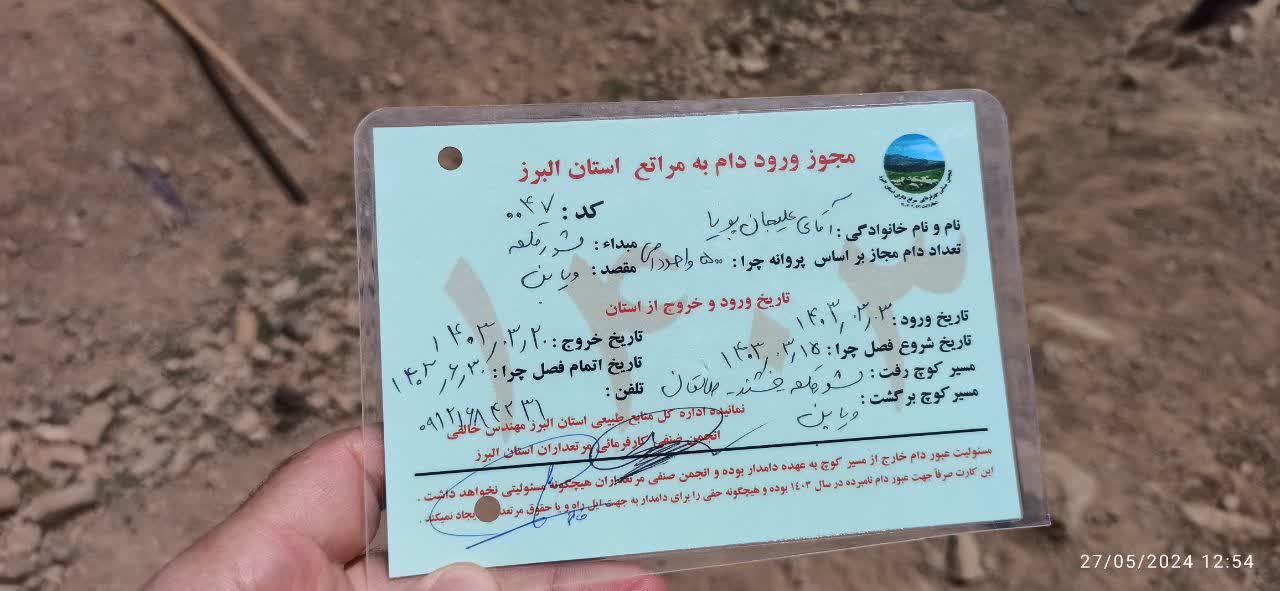 مجوز ورود دام به مراتع استان البرز
کد : ۰۰۴۷
نام و نام خانوادگی : آقای علیجان پویا
مبداء : شور قلعه
تعداد دام مجاز بر اساس پروانه چرا : ۵۰۰ واحد دامی
مقصد :
۱۴۰۳
تاریخ ورود و خروج از استان
تاریخ ورود : ۱۴۰۳/۰۳/۰۳
تاریخ خروج : ۱۴۰۳/۰۳/۲۰
تاریخ شروع فصل چرا : ۱۴۰۳/۰۳/۱۵
تاریخ اتمام فصل چرا : ۱۴۰۳/۶/۳۰
مسیر کوچ رفت : شور قلعه طالقان
تلفن :
مسیر کوچ برگشت :
نماینده اداره کل منابع طبیعی استان البرز مهندس خالقی
انجمن صنفی کارفرمائی مرتعداران استان البرز
مسئولیت عبور دام خارج از مسیر کوچ به عهده دامدار بوده و انجمن صنفی مرتعداران هیچگونه مسئولیتی نخواهد داشت .
این کارت صرفاً جهت عبور دام نامبرده در سال ۱۴۰۳ بوده و هیچگونه حقی را برای دامدار به جهت ایل راه و یا حقوق ایجاد نمیکند .
27/05/2024 12:54